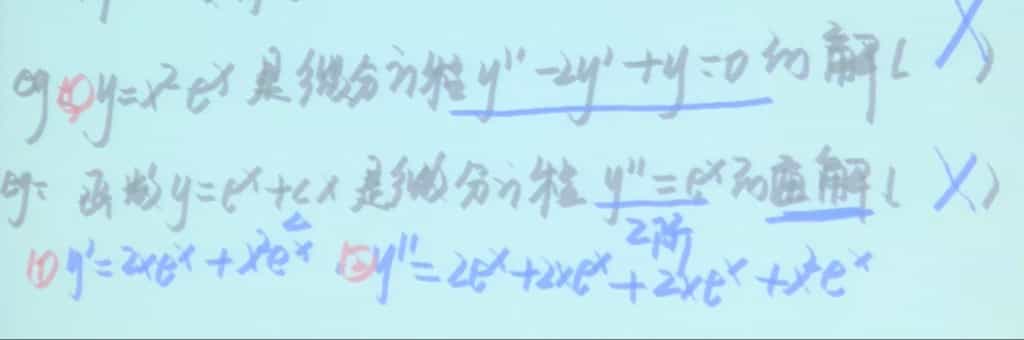 eg ① y=x²eˣ 是微分方程 y''-2y'+y=0 的解 ( X )
eg: 函数 y=eˣ+cx 是微分方程 y''=eˣ 的通解 ( X )
2阶
① y'=2xeˣ+x²eˣ ② y''=2eˣ+2xeˣ+2xeˣ+x²eˣ